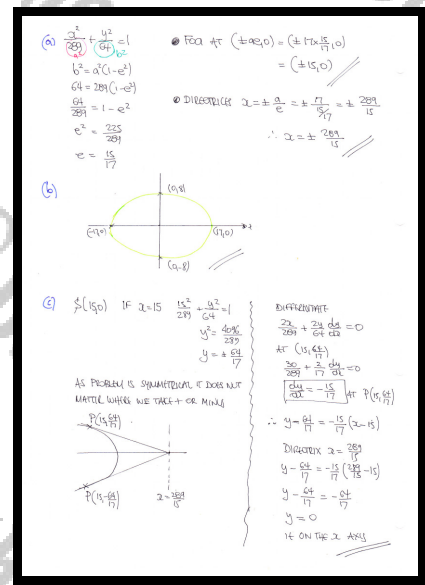 (a) x²/289 + y²/64 = 1
a² b²
b² = a²(1-e²)
64 = 289(1-e²)
64/289 = 1 - e²
e² = 225/289
e = 15/17
• FOCI AT (±ae,0) = (±17×15/17,0)
= (±15,0)
• DIRECTRICES x = ± a/e = ± 17/(15/17) = ± 289/15
∴ x = ± 289/15
(b)
(0,8)
(-17,0)
(17,0)
x
(0,-8)
(c) S(15,0) IF x=15 15²/289 + y²/64 = 1
y² = 4096/289
y = ± 64/17
AS PROBLEM IS SYMMETRICAL IT DOES NOT
MATTER WHERE WE TAKE + OR MINUS
P(15,64/17)
P(15,-64/17)
x = 289/15
DIFFERENTIATE
2x/289 + 2y/64 dy/dx = 0
AT (15,64/17)
30/289 + 2/17 dy/dx = 0
dy/dx = -15/17 AT P(15,64/17)
∴ y - 64/17 = -15/17 (x-15)
DIRECTRIX x = 289/15
y - 64/17 = -15/17 (289/15 - 15)
y - 64/17 = -64/17
y = 0
IE ON THE x AXIS